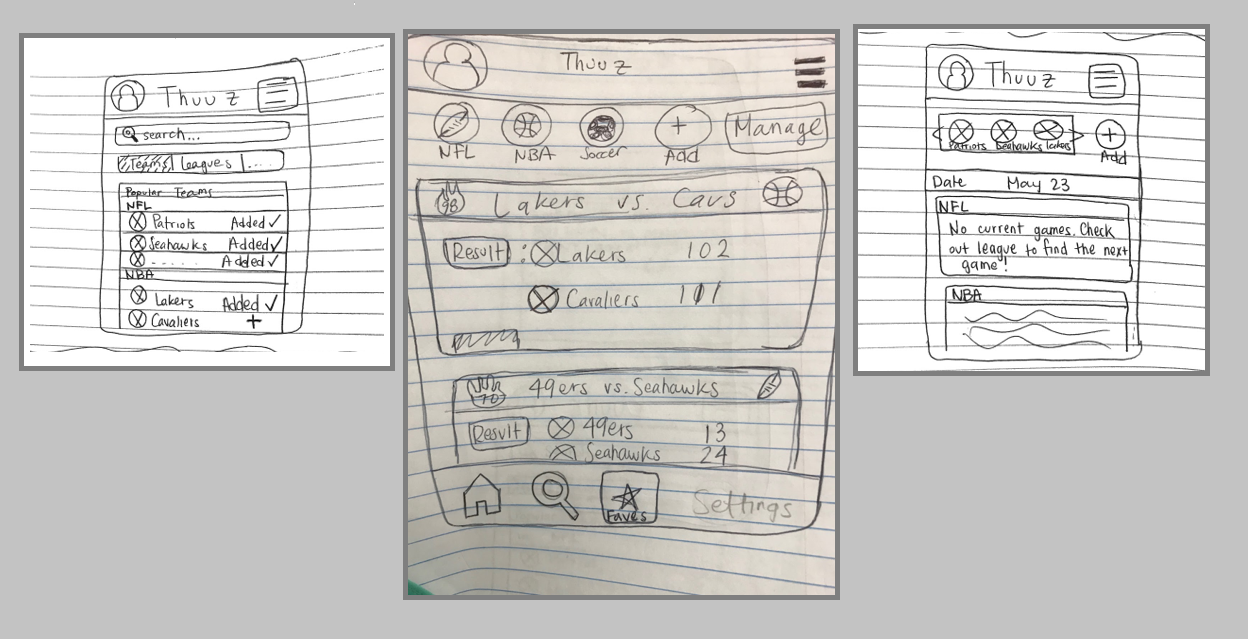 Thuuz
search...
Teams Leagues ....
Popular Teams
NFL
Patriots Added ✓
Seahawks Added ✓
..... Added ✓
NBA
Lakers Added ✓
Cavaliers +
Thuuz
NFL NBA Soccer + Add Manage
98 Lakers vs. Cavs
Result : Lakers 102
Cavaliers 101
70 49ers vs. Seahawks
Result 49ers 13
Seahawks 24
Faves Settings
Thuuz
< Patriots Seahawks Lakers > + Add
Date May 23
NFL
No current games. Check
out league to find the next
game!
NBA